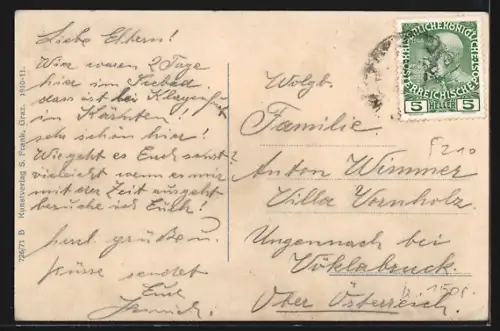 Liebe Eltern!
Wir waren 2 Tage
hier im Seebad
dass ist bei Klagenfurt
im Kärnten!
sehr schön hier!
Wie geht es Euch sonst?
vieleicht wenn es mir
mit der Zeit ausgeht
besuche ich Euch!
herzl. grüßen u.
Küsse sendet
Eure
726/71 B Kunstverlag S. Frank, Graz. 1910-11.
KAISERLICHE KÖNIGLICHE
ÖSTERREICHISCHE
5 HELLER 5
Wolgb.
Familie
Anton Wimmer
Villa Vornholz
Ungennach bei
Vöklabruck.
Ober Österreich.
5210